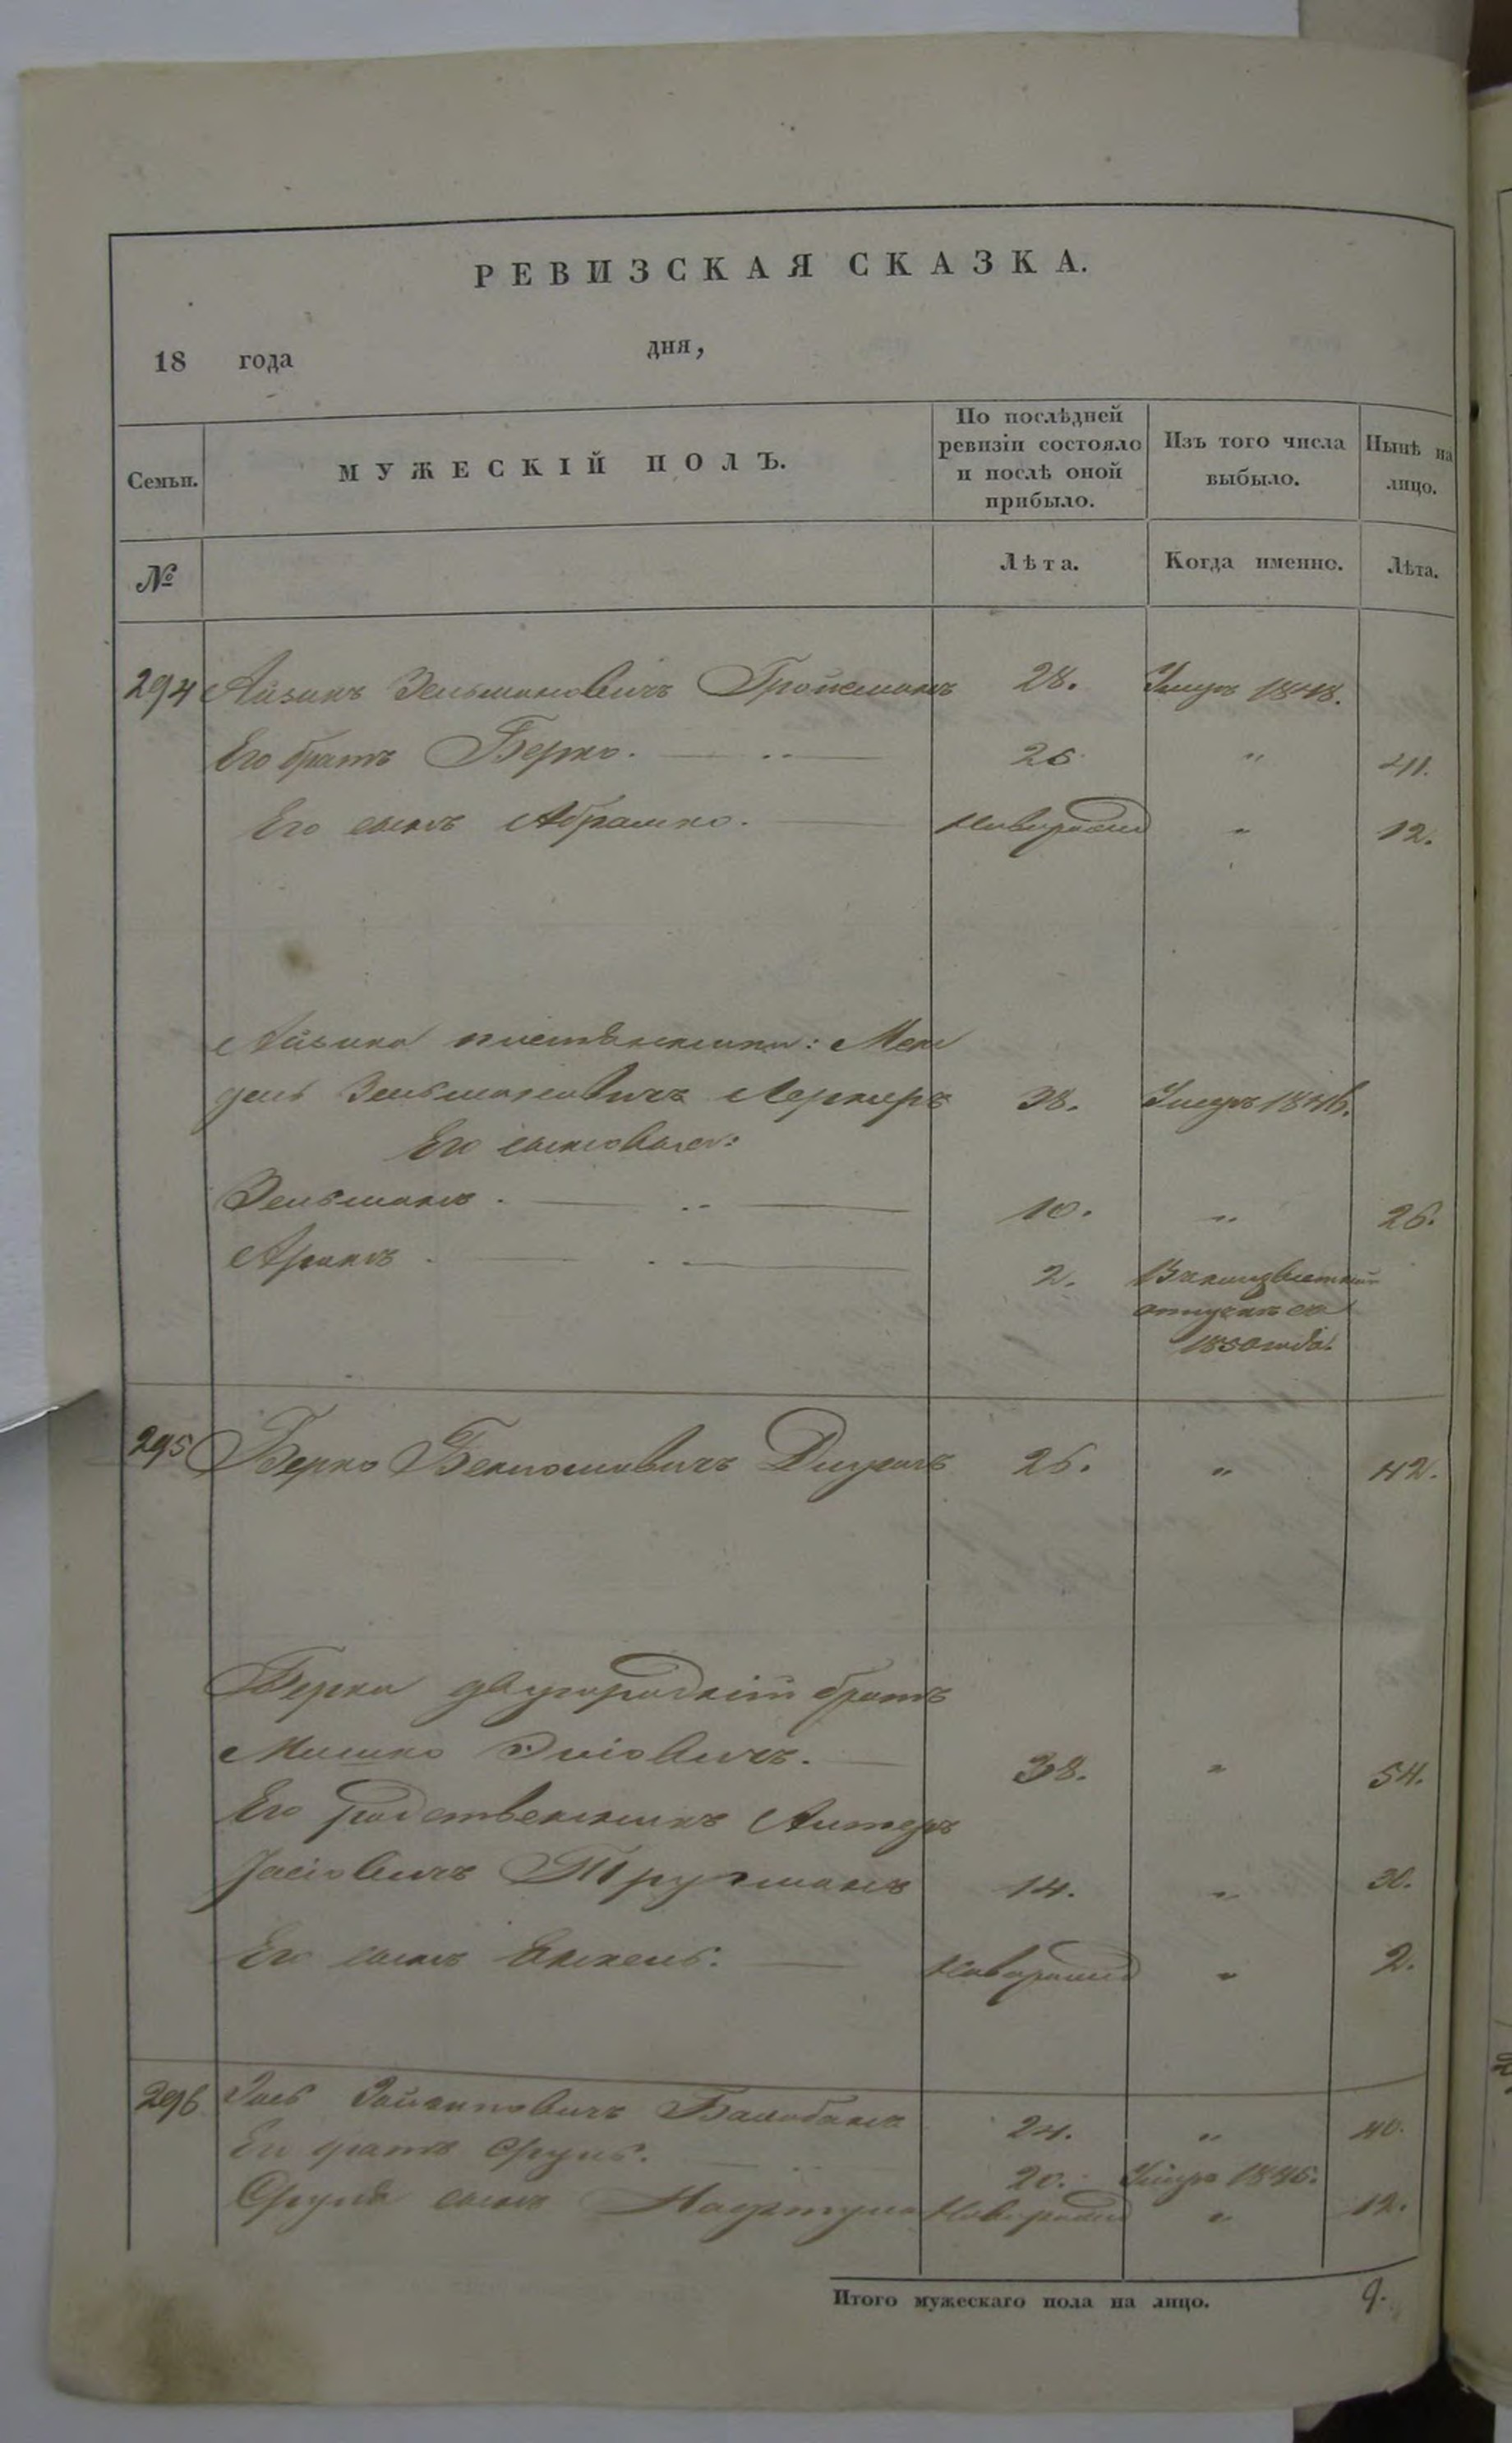 РЕВИЗСКАЯ СКАЗКА.
18 года дня,
Семьи. МУЖЕСКІЙ ПОЛЪ. По послѣдней ревизіи состояло и послѣ оной прибыло. Изъ того числа выбыло. Нынѣ на лицо.
№ Лѣта. Когда именно. Лѣта.
294 Айзикъ Зельмановичъ Гройсманъ 28. Умеръ 1848.
Его братъ Берко. 25. " 41.
Его сынъ Абрамко. Новорожд " 12.
Айзика племянники: Мен
дель Зельмановичъ Лернеръ 38. Умеръ 1846.
Его сыновья:
Зельманъ. 10. " 26.
Аронъ. 2. Въ неизвѣстной
отлучкѣ съ
1850 года.
295 Берко Беньоминовичъ 26. " 42.
Берка двуюродній братъ
Мошко 38. " 54.
Его родственникъ Алтеръ
Іосіовичъ 14. " 30.
Его сынъ Янкель. Новорожд " 2.
296 24. " 40.
Его братъ Срулъ. 20. Умеръ 1845.
Сруля сынъ Нафтула Новорожд " 12.
Итого мужескаго пола на лицо. 9.